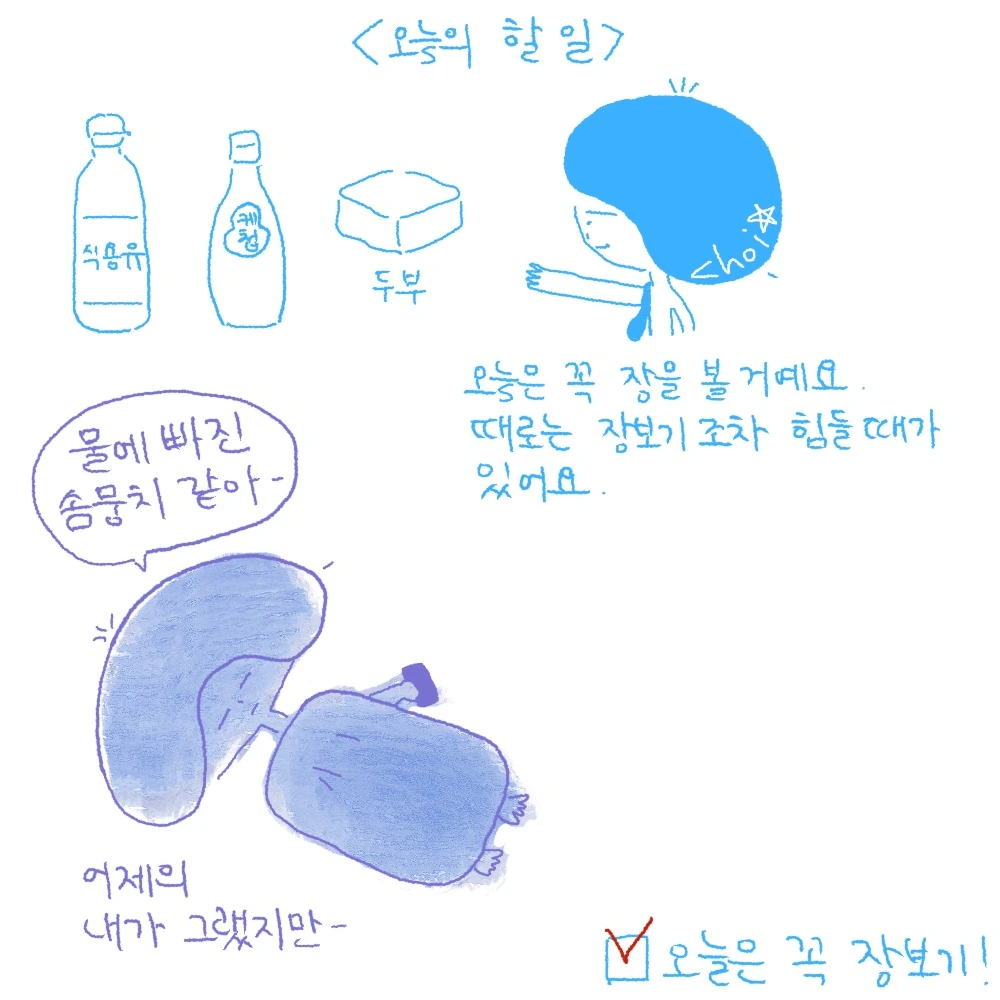 <오늘의 할 일>
식용유
케
첩
두부
choi☆
오늘은 꼭 장을 볼 거예요.
때로는 장보기 조차 힘들 때가
있어요.
물에 빠진
솜뭉치 같아-
어제의
내가 그랬지만-
오늘은 꼭 장보기!